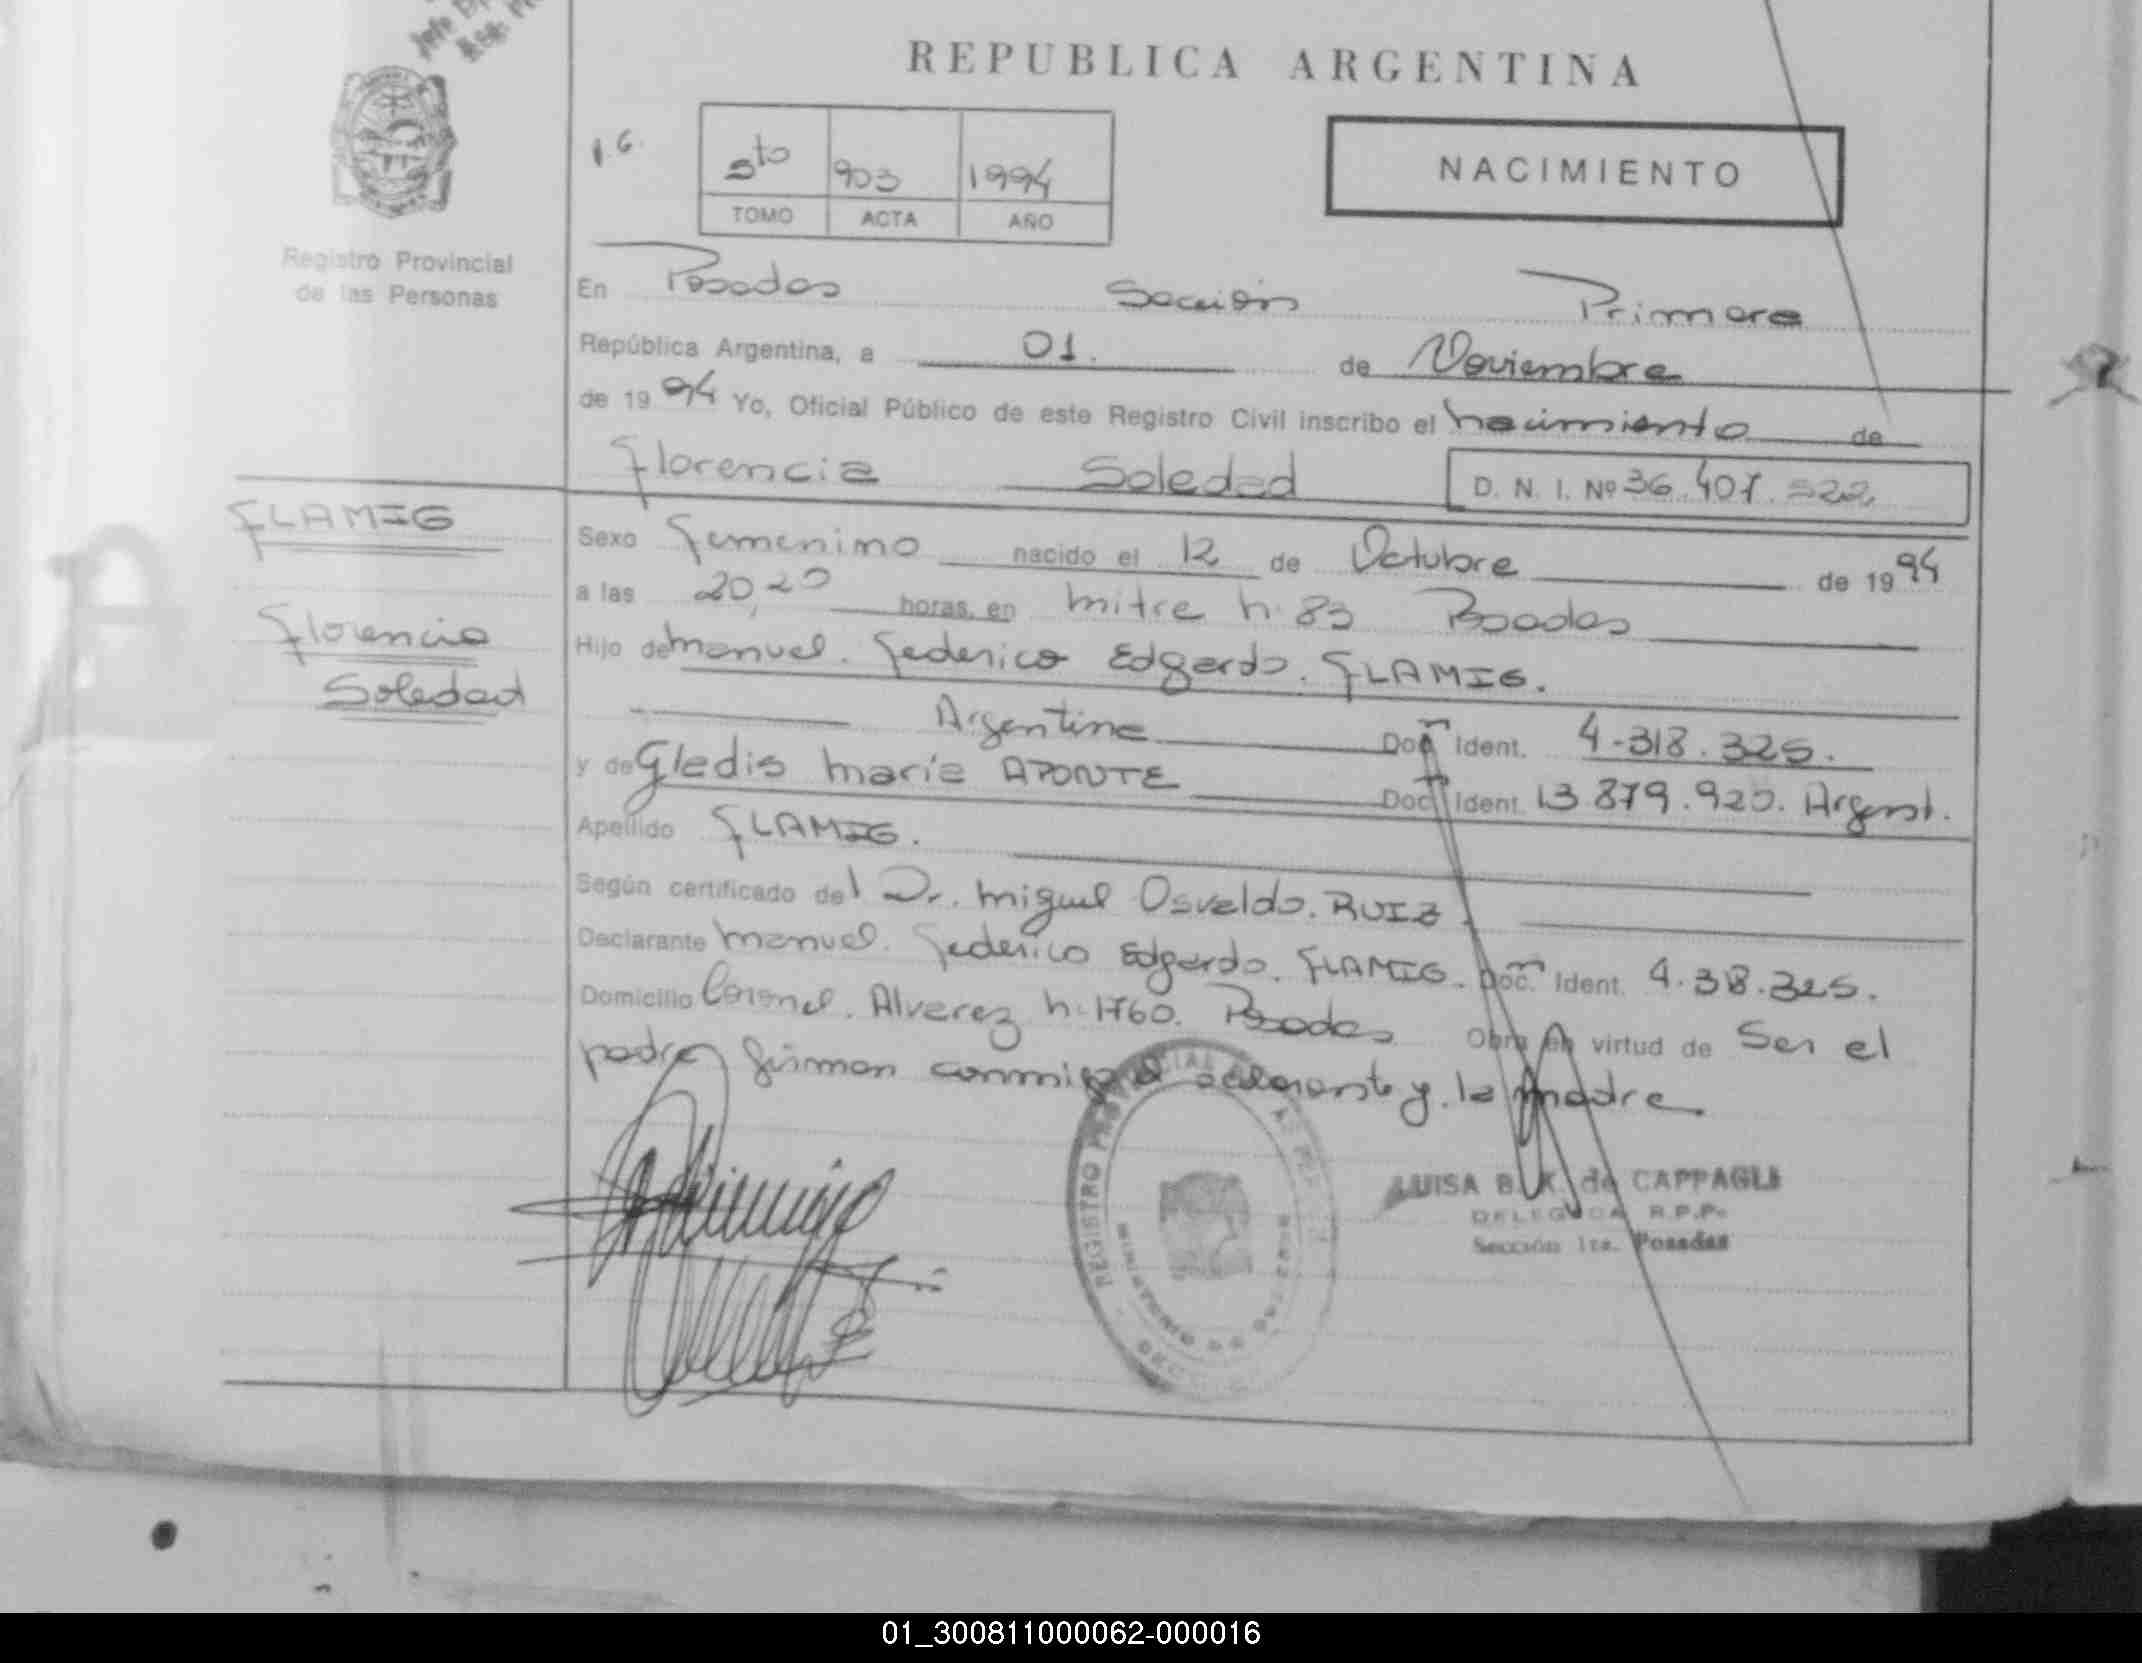 REPUBLICA ARGENTINA
5to 903 1994
TOMO ACTA AÑO
NACIMIENTO
Registro Provincial
de las Personas
En Posadas Sección Primera
República Argentina, a 01. de Noviembre
de 1994 Yo, Oficial Público de este Registro Civil inscribo el nacimiento de
Florencia Soledad
D. N. I. Nº 36.407.522
FLAMIG
Florencia
Soledad
Sexo Femenino nacido el 12 de Octubre de 1994
a las 20,20 horas, en mitre n: 83 Posadas
Hijo de manuel. Federico Edgardo. FLAMIG.
Argentina Doc Ident. 4.318.325.
y de Gledis maria APONTE Doc Ident. 13 879.920. Argent.
Apellido FLAMIG.
Según certificado del Dr. miguel Osvaldo. RUIZ.
Declarante manuel. Federico Edgardo. FLAMIG. Doc. Ident. 4.318.325.
Domicilio Coronel. Alvarez n: 1760. Posadas Obra en virtud de Ser el
padre firman conmigo el declarante y la madre
LUISA B. K. de CAPPAGLI
DELEGADA R.P.P.
Sección 1ra. Posadas
REGISTRO PROVINCIAL
01_300811000062-000016